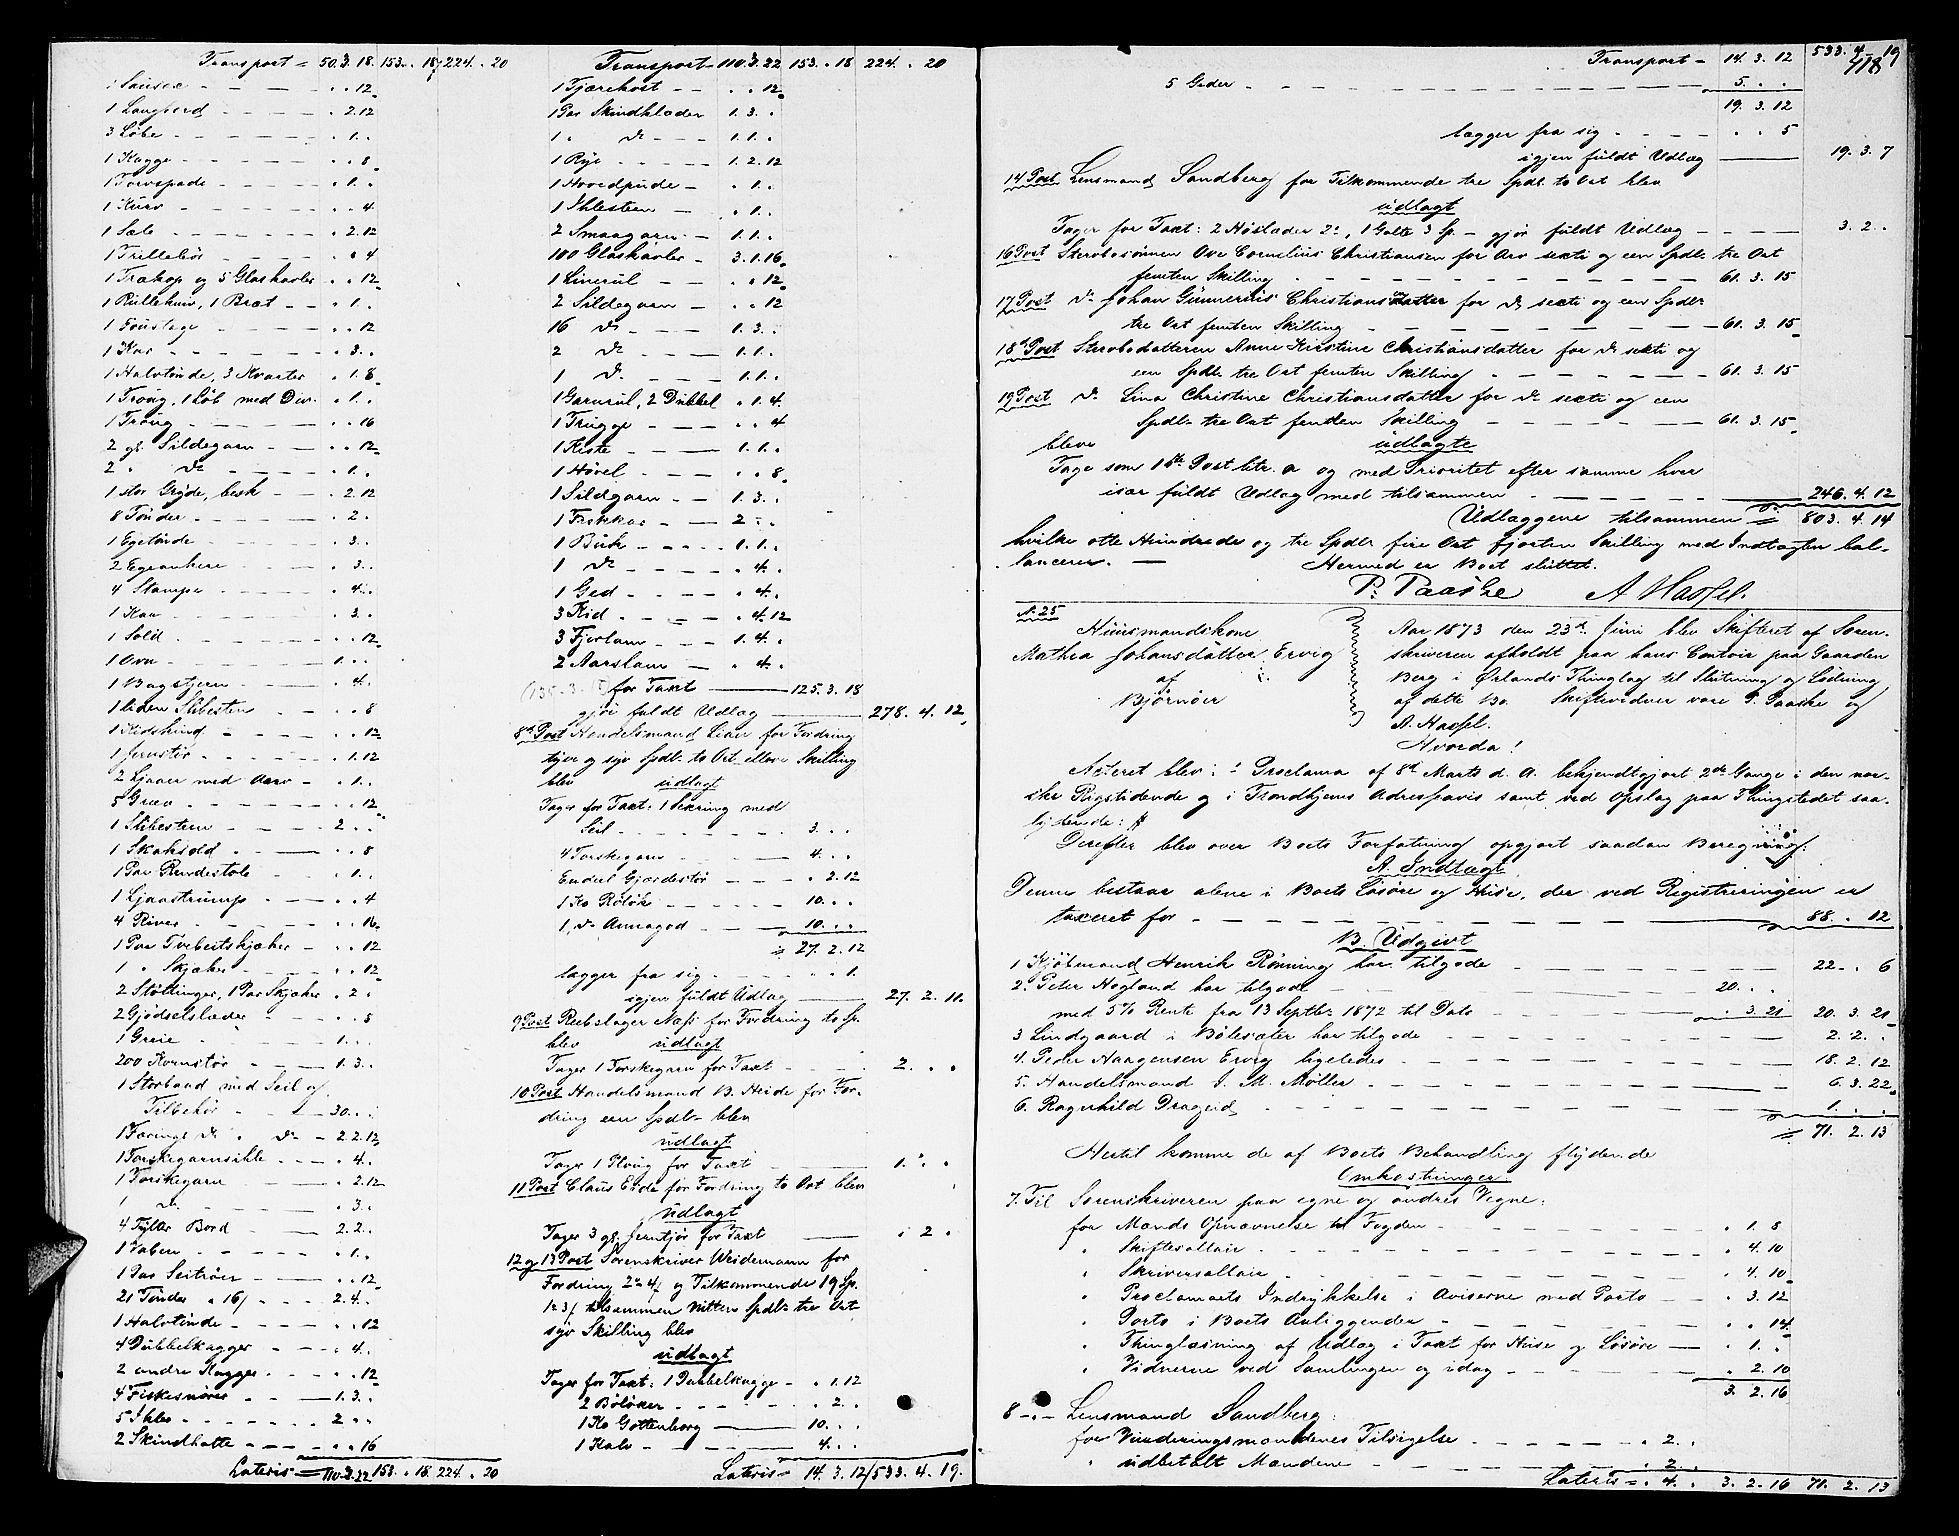 Transport = 50.3.18. 153. . 18 224. . 20
1 Langbord - - - - . 2.12
3 Løbe - - - - . 1. .
1 Kagge - - - - . . 8
1 Torvspade - - - . 1. .
1 Kurv - - - - . . 4
1 Sæle - - - - . 2.12
1 Trillebør - - - . . 4
1 Trækop og 5 Glaskavler . . 12
1 Rullekniv, 1 Bræt - . 1. .
1 Foustage - - - . . 12
1 Kar - - - - . 3. .
1 Halvtønde, 3 Kvarter . 1.8
1 Troug, 1 Løb med Div. . 1. .
1 Troug - - - - . . 16
2 gl. Sildegarn - - . . 12
2 " do - - - . 1. .
1 stor Gryde, besk - . 2.12
8 Tønder - - - . 2. .
1 Egetønde - - - . 3. .
2 Egeankere - - - . 3. .
4 Stampe - - - . 4. .
1 Kar - - - - . 3. .
1 Sold - - - - . . 12
1 Ovn - - - - 1. . .
1 Bagstjern - - - . 4. .
1 liden Slibesten - - . . 8
1 Kidskind - - - . . 12
1 Jernstør - - - . 1.12
2 Ljaaer med Aarv - . 1. .
5 Græv - - - - . . 12
1 Slibesten - - - 2. . .
1 Skaksold - - - . . 8
1 Par Rendestole - - . 1. .
1 Ljaastrump - - - . . 4
4 River - - - - . . 16
1 Par Tvebeitskjæker - . . 12
1 " Skjæker - - - . . 12
2 Støttinger, 1 Par Skjæker . 2. .
2 Gjødselslæder - - . . 8
1 Greie - - - - 1. . .
200 Kornstør - - - . 1.3. .
1 Storbaad med Seil og
Tilbehør - - - 30. . .
1 Færings do " do - 2.2.12
1 Torskegarnsible - - . 4. .
1 Torskegarn - - - . 2.12
1 do - - - . 3. .
4 Tylter Bord - - - 2.2. .
1 Vaben - - - - . 1. .
1 Par Seitrøer - - - . . 12
21 Tønder " 16/ - - 2.4. .
1 Halvtønde - - - . . 12
4 Dubbelkagger - - . 4. .
2 andre Kagger - - . . 12
4 Fiskesnører - - - 1.3. .
5 Ihler - - - - 2. . .
2 Skindhatte - - - . . 16
Lateris = 110.3.22 153. . 18. 224. . 20
Transport - 110.3.22 153. . 18 224. . 20
1 Tjærekost - - . . 12
1 Par Skindklæder 1.3. .
1 " do - - 1.1. .
1 Rye - - - 1.2.12
1 Hovedpude - . 1. .
1 Ihlesteen - . 1. .
2 Smaagarn - 1.1. .
100 Glaskavler - 3.1.16
1 Linerul - - . . 12
2 Sildegarn - . . 12
16 do - - 1.3. .
2 do - - 1.1. .
1 do - - 1.1. .
1 Garnrul, 2 Dubbel . 1.4.
1 Trugge - - . . 4
1 Kiste - - - 1.1. .
1 Høvel - - - . . 8
1 Sildgarn - - 1.3. .
1 Fiskkar - - 2. . .
1 Buk - - - 1.1. .
1 do - - - . 4. .
1 Ged - - - . 4. .
3 Kid - - - . 4.12
3 Fjorlam - - 1.4. .
2 Aarslam - . 4. .
for Taxt - 125.3.18
gjør fuldt Udlæg - 278.4.12
8de Post Handelsmand Lian for Fordring
tyve og syv Spdlr. to Ort elleve Skilling
blev udlagt
Tager for Taxt: 1 Sexring med
Seil - - - - 3. . .
4 Torskegarn - - - 4. . .
Endeel Gjærdestør - - . 2.12
1 Ko Røløk - - - 10. . .
1 do Annagod - - - 10. . .
= 27.2.12
lægger fra sig - - . . 1.
igjen fuldt Udlæg - 27.2.11.
9 Post Rebslager Næss for Fordring to Sp.
blev udlagt
Tager 1 Torskegarn for Taxt - - 2. . .
10 Post Handelsmand B. Heide for For-
dring een Spdlr. blev
udlagt
Tager 1 Ploug for Taxt - 1. . .
11 Post Claus Eide for Fordring to Ort blev
udlagt
Tager 3 gl. Jerntjør for Taxt - . 2 .
12 og 13 Post Sorenskriver Weidemann for
Fordring 2 " 4/ og Tilkommende 19 Sp.
1 " 3/ tilsammen nitten Spdlr tre Ort
syv Skilling blev
udlagt
Tager for Taxt: 1 Dubbelkagge - . 1.12
2 Bøløker - - - . 2. .
1 Ko Gottenborg - 10. . .
1 Kalv - - - 4. . .
Lateris = 14.3.12/533.4.19.
Transport - 14.3.12 533.4.19
418
5 Geder - - - - 5. . .
19.3.12
lægger fra sig - - - . . 5
igjen fuldt Udlæg - 19.3.7
14 Post Lensmand Sandberg for Tilkommende tre Spdlr. to Ort blev
udlagt
Tager for Taxt: 2 Høslæder 2 ", 1 Galte 3 Sp. - gjør fuldt Udlæg - - - 3.2. .
16 Post Stervbosønnen Ove Cornelius Christiansen for Arv sexti og een Spdlr. tre Ort
femten Skilling - - - - 61.3.15
17 Post do Johan Gunnerius Christiansen for do sexti og een Spdlr
tre Ort femten Skilling - - - - 61.3.15
18de Post Stervbodatteren Anne Kirstine Christiansdatter for do sexti og
een Spdlr. tre Ort femten Skilling - - - 61.3.15
19 Post do Lina Christine Christiansdatter for do sexti og een
Spdlr. tre Ort femten Skilling - - - 61.3.15
bleve udlagte
Tage som 15de Post litr. a og med Prioritet efter samme hver
især fuldt Udlæg med tilsammen - - - 246.4.12
Udlæggene tilsammen = 803.4.14
hvilke otte Hundrede og tre Spdlr. fire Ort fjorten Skilling med Indtægten bal-
lancerer. - Hermed er Boet sluttet.
P. Paaske A Hassel.
N. 25
Huusmandskone
Mathea Johansdatter Ervig
af
Bjørnøer
Aar 1873 den 23de Juni blev Skifteret af Soren-
skriveren afholdt paa hans Contoir paa Gaarden
Berg i Ørlands Thinglag til Slutning og Lodning
af dette Bo. Skiftevidner vare P. Paaske og
A. Hassel.
Hvorda!
Acteret blev: 1 Proclama af 8de Marts d. A. bekjendtgjort 2de Gange i den nor-
ske Rigstidende og i Trondhjems Adresseavis samt ved Opslag paa Thingstedet saa-
lydende: #
Derefter blev over Boets Forfatning opgjort saadan Beregning.
A. Indtægt
Denne bestaar alene i Boets Løsøre og Huse, der ved Registreringen er
taxeret for - - - - 88. . 12
B. Udgivt
1 Kjøbmand Henrik Rønning har tilgode - - - 22. . 6
2. Peter Hogland har tilgode - - - 20. . .
med 5% Rente fra 13 Septbr. 1872 til Dato - - . 3.21 20.3.21
3 Lindgaard i Bølesæter har tilgode - - - 2.2. .
4. Peder Haagensen Ervig ligeledes - - - 18.2.12
5. Handelsmand J. M. Møller - - - 6.3.22
6. Ragnhild Drageid - - - 1. . .
= 71.2.13
Hertil komme de af Boets Behandling flydende
Omkostninger.
7. Til Sorenskriveren paa egne og andres Vegne:
for Mænds Opnævnelse til Fogden - - - . 1.8
" Skiftesallair - - - . 4.10
" Skriversallair - - - . 4.10
" Proclamaets Indrykkelse i Aviserne med Porto - - . 3.12
" Porto i Boets Anliggender - - - . . 14
" Thinglæsning af Udlæg i Taxt for Huse og Løsøre - . 1. .
" Vidnerne ved Samlingen og idag - - - . 2.10
3.2.16
8 - " - Lensmand Sandberg:
for Vurderingsmændenes Tilsigelse - - - . 2. .
" udbetalt Mændene - - - . 2. .
Lateris = . 4. . 3.2.16 71.2.13